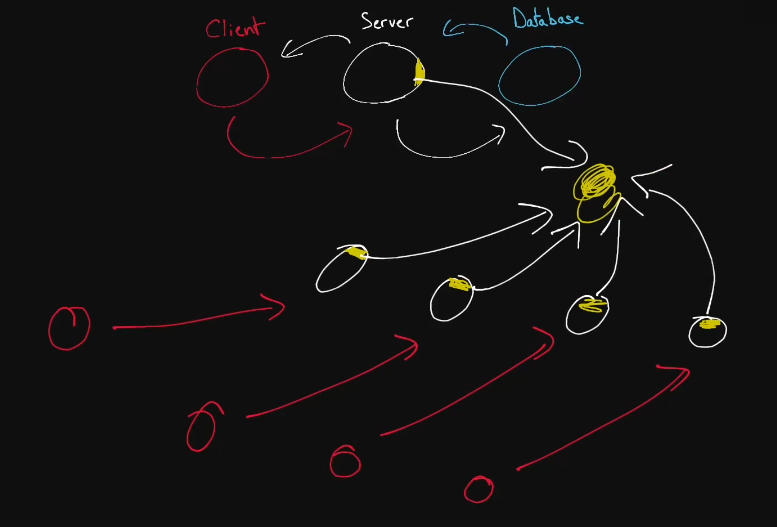 Client
Server
Database